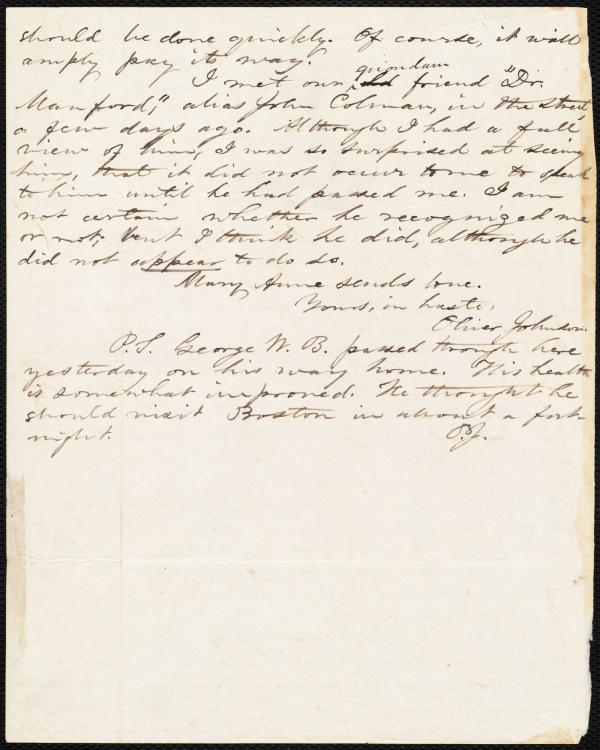 should be done quickly. Of course, it will
amply pay its way.
quondam
I met our old friend "Dr.
Manford," alias John Colman, in the street,
a few days ago. Although I had a full
view of him, I was so surprised at seeing
him, that it did not occur to me to speak
to him until he had passed me. I am
not certain whether he recognized me
or not; but I think he did, although he
did not appear to do so.
Mary Anne sends love.
Yours, in haste,
Oliver Johnson.
P.S. George W. B. passed through here
yesterday on his way home. His health
is somewhat improved. He thought he
should visit Boston in about a fort-
night.
O.J.